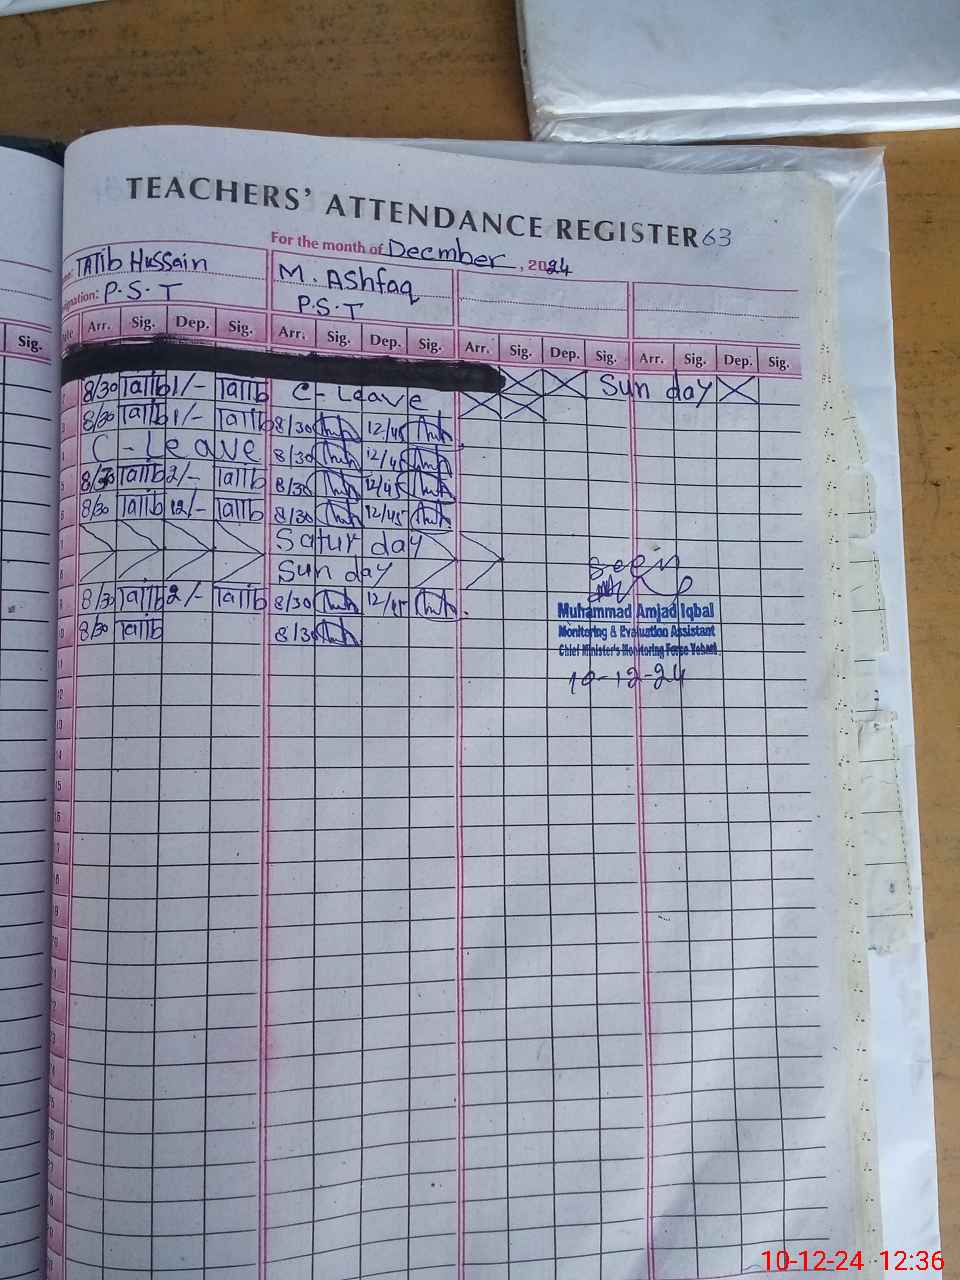 TEACHERS' ATTENDANCE REGISTER 63
For the month of Decmber, 2024
TAlib Hussain M. AShfaq
ignation: P.S.T P.S.T
Sig. Arr. Sig. Dep. Sig. Arr. Sig. Dep. Sig. Arr. Sig. Dep. Sig. Arr. Sig. Dep. Sig.
8/30 Talib 1/- Talib C-Leave Sunday
8/30 Talib 1/- Talib 8/30 12/45
C-Leave 8/30 12/45
Talib 2/- Talib 8/30 12/45
8/30 Talib 12/- Talib 8/30 12/45
Saturday
Sunday
8/30 Talib 2/- Talib 8/30 12/45
8/30 Talib 8/30
11
12
13
14
15
seen
Muhammad Amjad Iqbal
Monitoring & Evaluation Assistant
Chief Minister's Monitoring Force Vehari
10-12-24
10-12-24 12:36